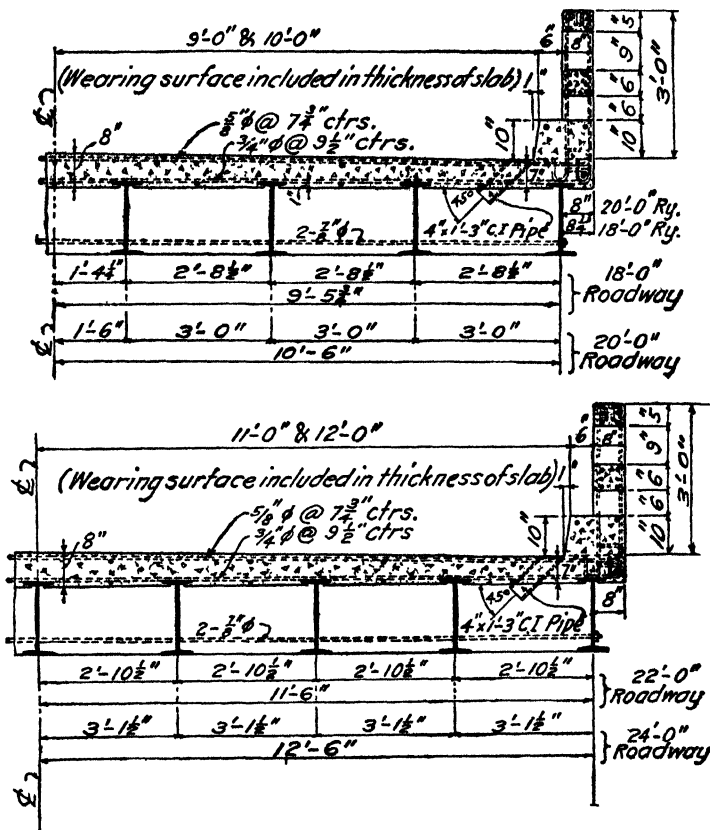 9'-0" & 10'-0"
6"
8"
5"
9"
6"
6"
10"
3'-0"
(Wearing surface included in thickness of slab) 1"
℄
5/8"φ @ 7 3/4" ctrs.
3/4"φ @ 9 1/2" ctrs.
8"
10"
7"
1"
45°
4"x1'-3" C I Pipe
2-7/8"φ
8" 20'-0" Ry.
8 1/4" 18'-0" Ry.
1'-4 1/4" 2'-8 1/2" 2'-8 1/2" 2'-8 1/2"
9'-5 3/4"
18'-0" Roadway
℄
1'-6" 3'-0" 3'-0" 3'-0"
10'-6"
20'-0" Roadway
11'-0" & 12'-0"
6"
8"
5"
9"
6"
6"
10"
3'-0"
℄
(Wearing surface included in thickness of slab) 1"
5/8"φ @ 7 3/4" ctrs.
3/4"φ @ 9 1/2" ctrs
8"
10"
7"
45°
4"x1'-3" C.I Pipe
8"
2-7/8"φ
2'-10 1/2" 2'-10 1/2" 2'-10 1/2" 2'-10 1/2"
11'-6"
22'-0" Roadway
3'-1 1/2" 3'-1 1/2" 3'-1 1/2" 3'-1 1/2"
12'-6"
24'-0" Roadway
℄